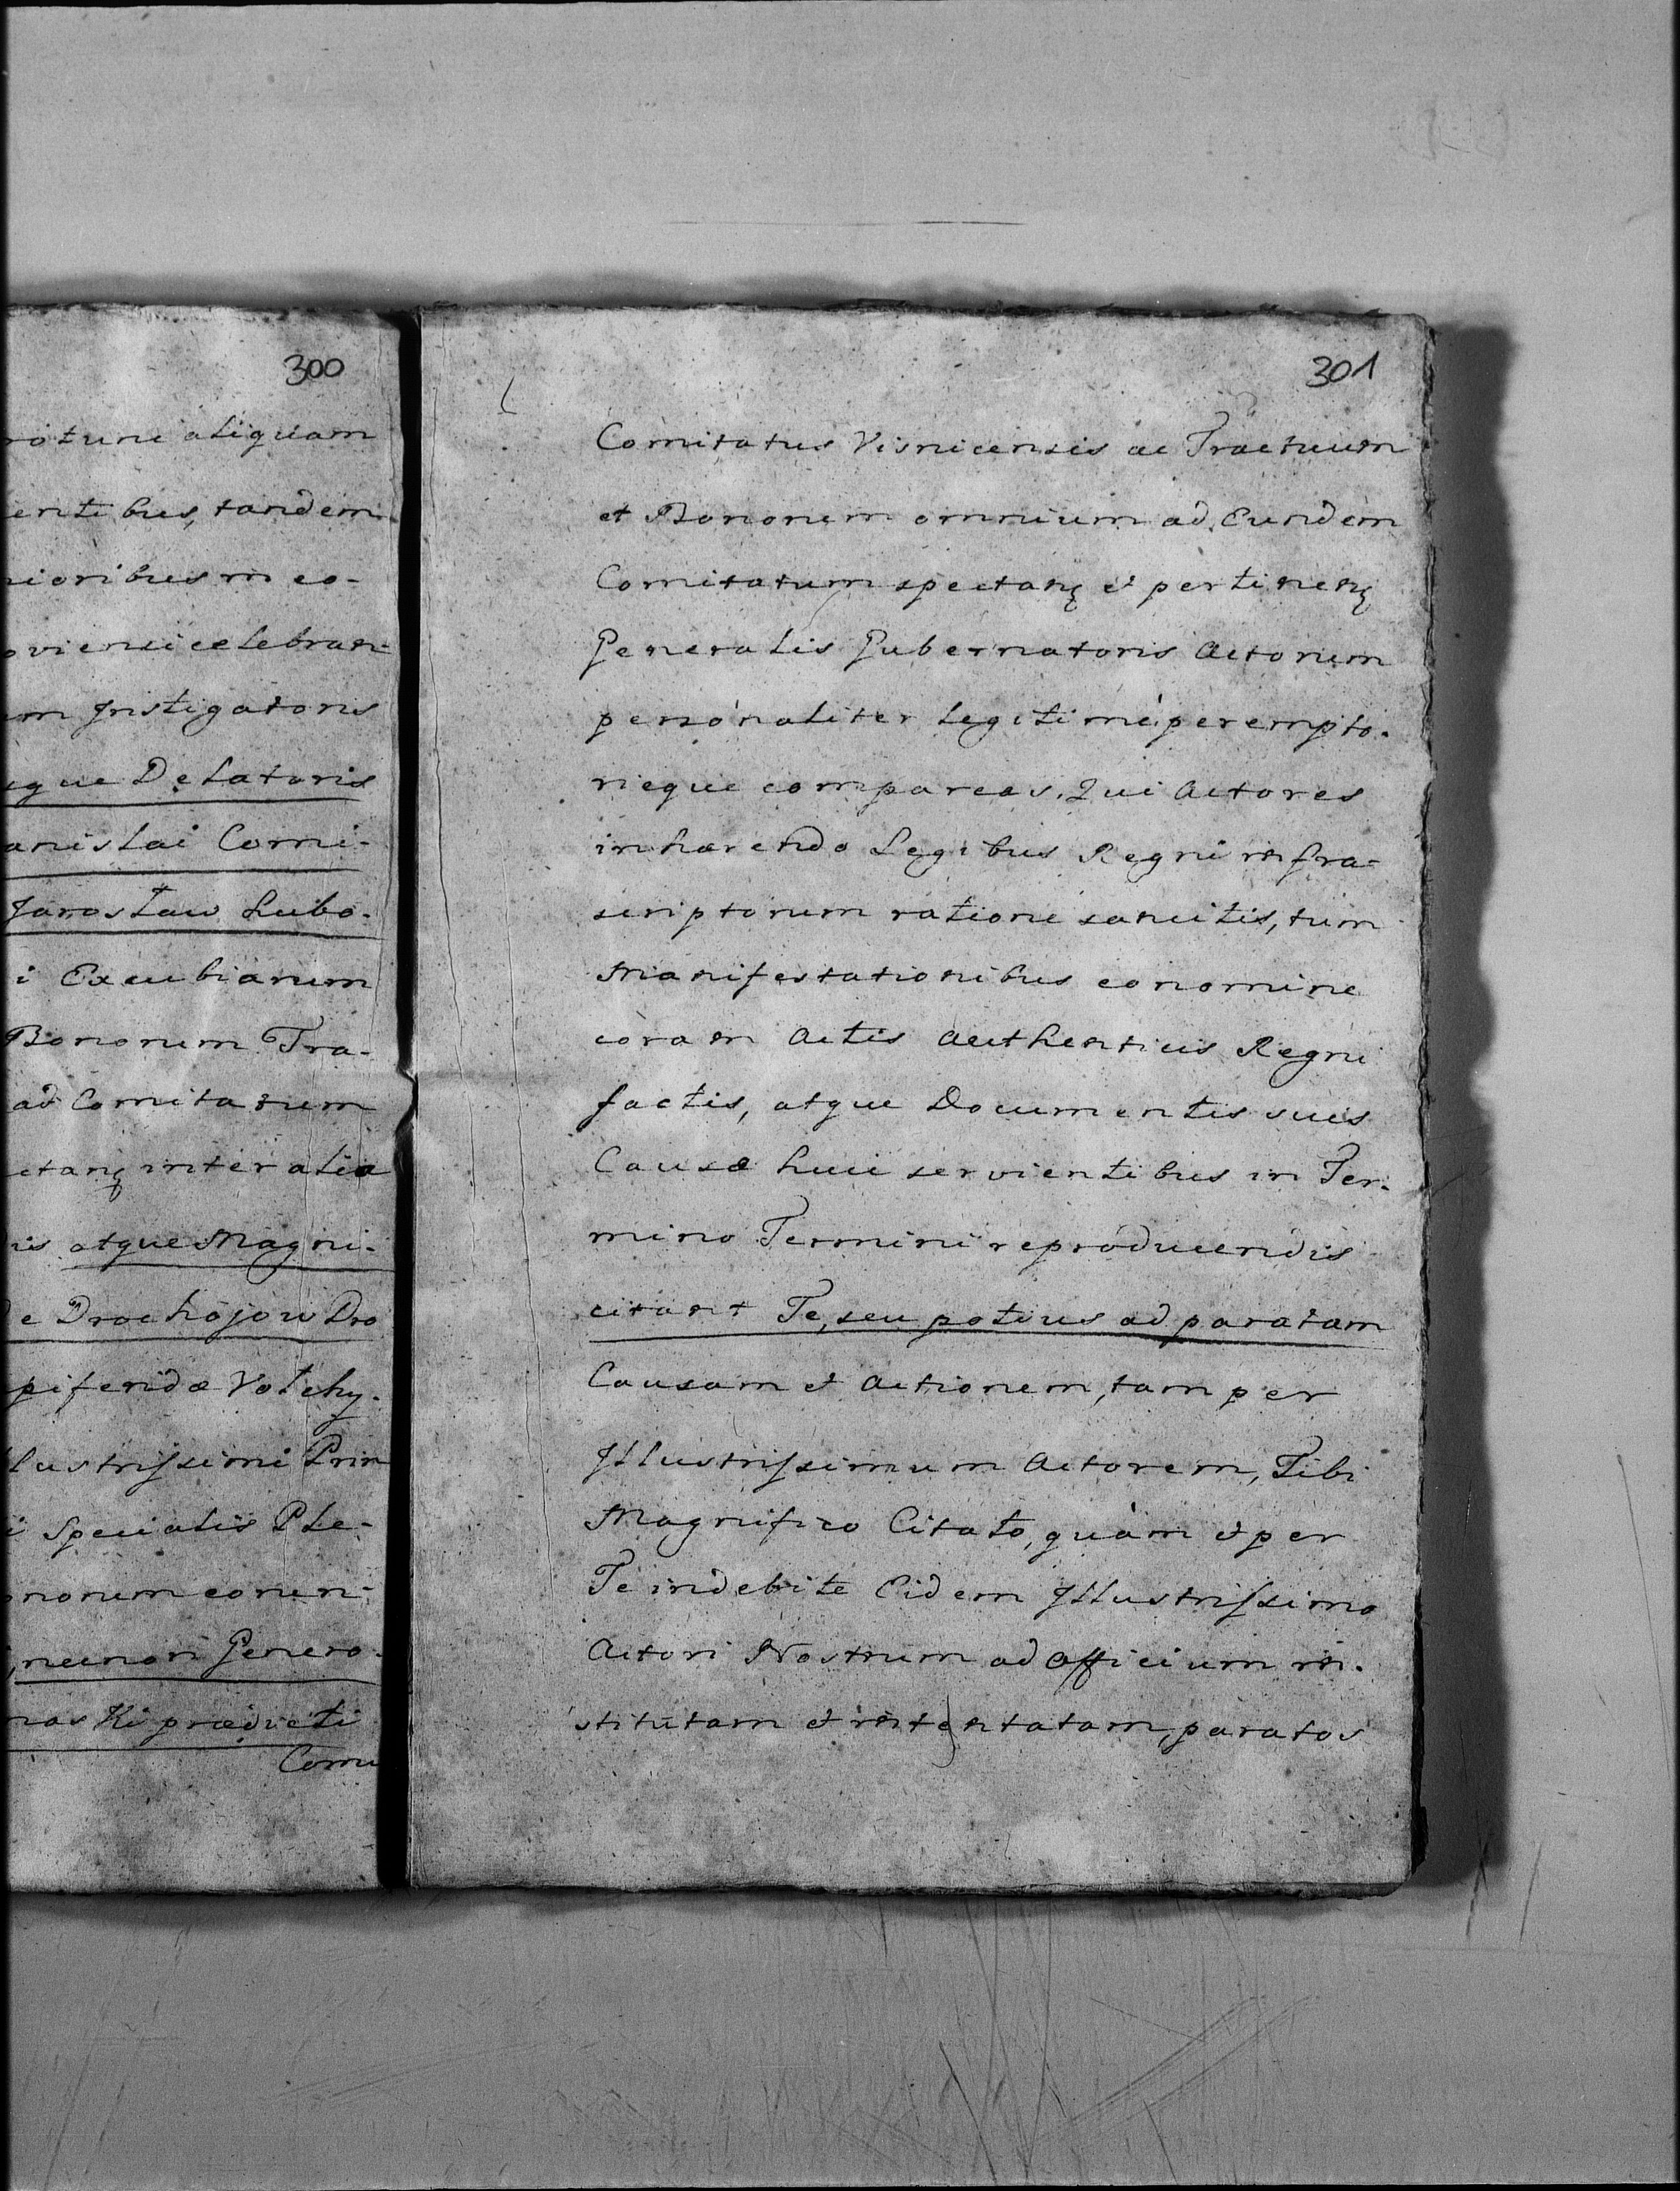 300
rotuni aliquam
entibus, tandem
rioribus in eo-
oviensi celebran-
em Instigatoris
ique Delatoris
anislai Comi-
Jarosław Lubo-
i Excubiarum
Bonorum Tra-
ad Comitatum
ctanę inter alia
is atque Magni-
e Drochojow Dro
piferidæ Volchy-
lustrissimi Prin
i Specialis Ple-
onorum eorun-
, necnon Genero-
naski prædicti
Comi
301
Comitatus Visnicensis ac Tractuum
et Bonorum omnium ad Eundem
Comitatum spectanę et pertinenę
Generalis Gubernatoris Actorum
personaliter legitimè perempto-
rieque compareas. Qui Actores
inhærendo Legibus Regni infra-
scriptorum ratione sancitis, tum
Manifestationibus eo nomine
coram Actis Authenticis Regni
factis, atque Documentis suis
Causæ huic servientibus in Ter-
mino Termini reproducendis
citant Te, seu potius ad paratam
Causam et Actionem, tam per
Illustrissimum Actorem, Tibi
Magnifico Citato, quàm et per
Te indebite Eidem Illustrissimo
Actori Nostrum ad Officium in-
stitutam et intentatam, paratos